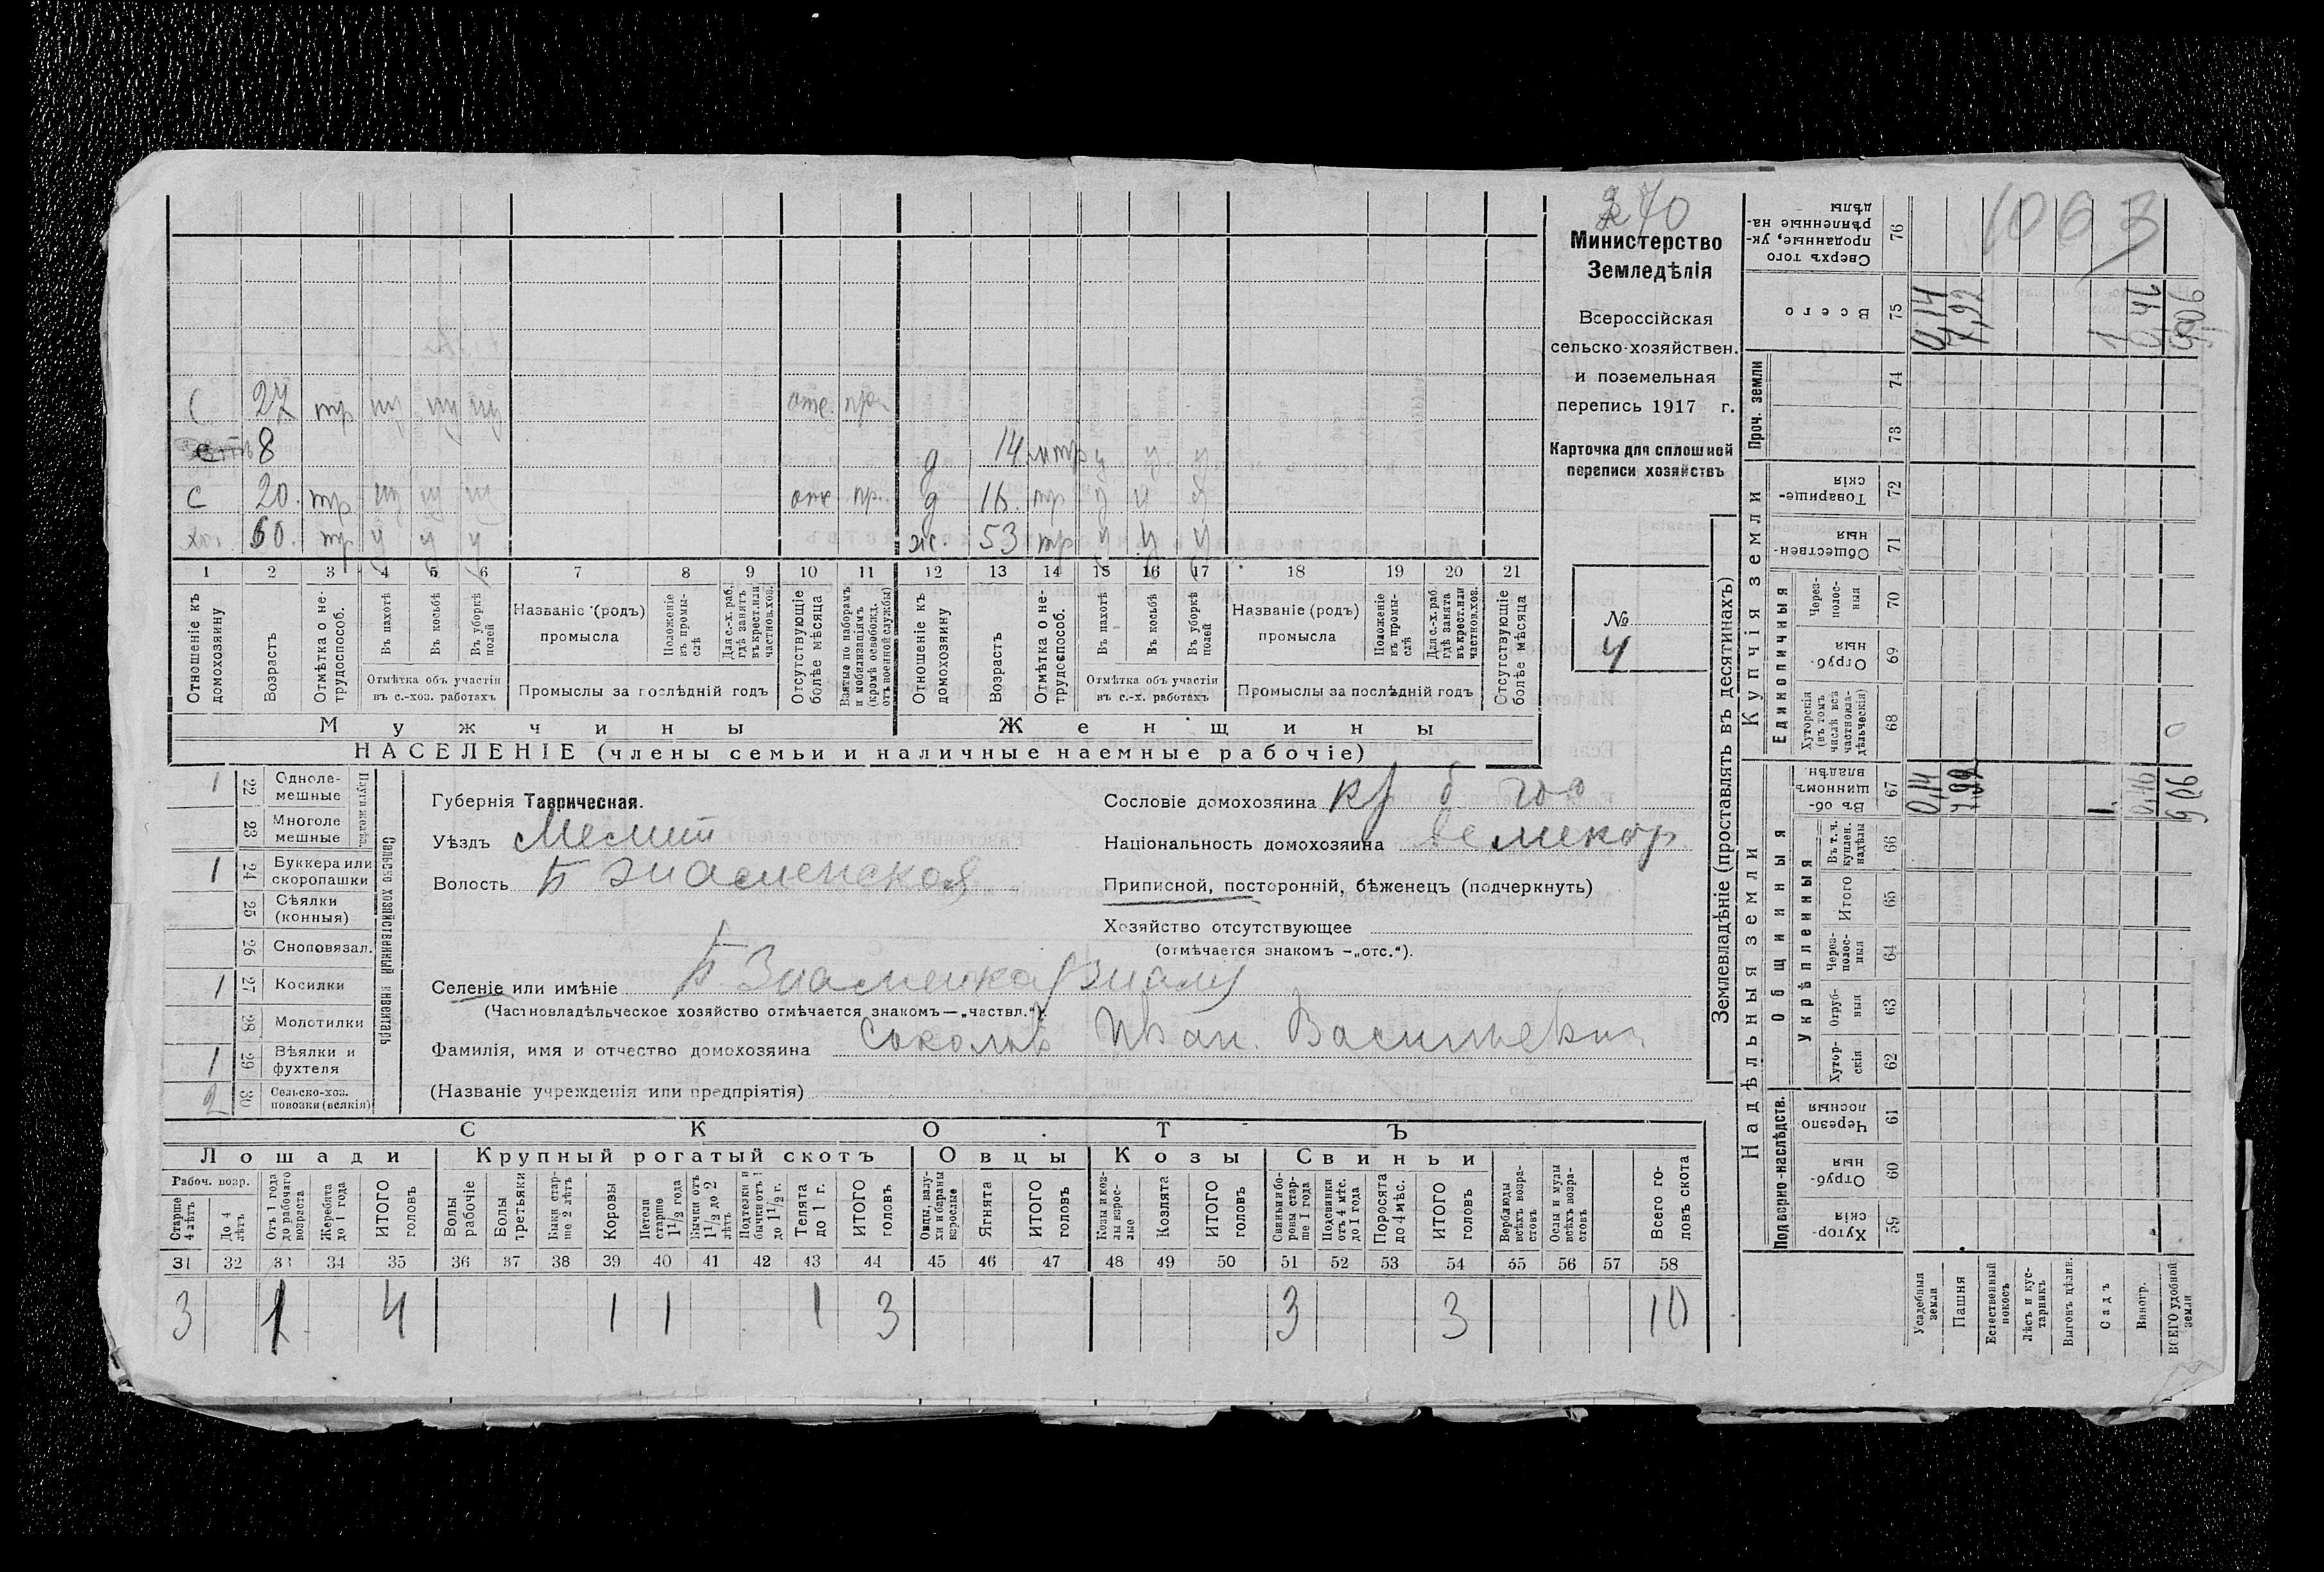 270
Министерство
Земледѣлія
Всероссійская
сельско-хозяйствен.
и поземельная
перепись 1917 г.
Карточка для сплошной
переписи хозяйствъ
№
4
1063
С 27 тр отс.
8 д 14
С 20. тр пр. д 16. тр
хоз. 60. тр у у у ж. 53 тр у у у
1 2 3 4 5 6 7 8 9 10 11 12 13 14 15 16 17 18 19 20 21
Отношеніе къ домохозяину
Возрастъ
Отмѣтка о не-трудоспособ.
Въ пахотѣ
Въ косьбѣ
Въ уборкѣ полей
Отмѣтка объ участіи въ с.-хоз. работахъ
Названіе (родъ) промысла
Положеніе въ промы-слѣ
Для с.-х. раб. гдѣ занятъ въ крест. или частнов. хоз.
Промыслы за послѣдній годъ
Отсутствующіе болѣе мѣсяца
Взятые по наборамъ и мобилизаціямъ (кромѣ освобожд. отъ военной службы)
Отношеніе къ домохозяину
Возрастъ
Отмѣтка о не-трудоспособ.
Въ пахотѣ
Въ косьбѣ
Въ уборкѣ полей
Отмѣтка объ участіи въ с.-х. работахъ
Названіе (родъ) промысла
Положеніе въ промы-слѣ
Для с.-х. раб. гдѣ занята въ крест. или частнов. хоз.
Промыслы за послѣдній годъ
Отсутствующіе болѣе мѣсяца
Мужчины Женщины
НАСЕЛЕНІЕ (члены семьи и наличные наемные рабочіе)
Сельско хозяйственный инвентарь
1 22 Одноле-мешные
23 Многоле мешные
1 24 Буккера или скоропашки
25 Сѣялки (конныя)
26 Сноповязал.
1 27 Косилки
28 Молотилки
1 29 Вѣялки и фухтеля
2 30 Сельско-хоз. повозки (всякія)
Губернія Таврическая.
Уѣздъ Мелит
Волость Б Знаменская
Сословіе домохозяина кр
Національность домохозяина великор
Приписной, посторонній, бѣженецъ (подчеркнуть)
Хозяйство отсутствующее
(отмѣчается знакомъ —„отс.“).
Селеніе или имѣніе Б. Знаменка
(Частновладѣльческое хозяйство отмѣчается знакомъ—„частвл.“).
Фамилія, имя и отчество домохозяина Соколов Иван. Васильевич
(Названіе учрежденія или предпріятія)
СКОТЪ
Лошади Крупный рогатый скотъ Овцы Козы Свиньи
Рабоч. возр.
Старше 4 лѣтъ
До 4 лѣтъ
Отъ 1 года до рабочаго возраста
Жеребята до 1 года
ИТОГО головъ
Волы рабочіе
Волы третьяки
Быки стар-ше 2 лѣтъ
Коровы
Нетели старше 1 1/2 года
Бычки отъ 1 1/2 до 2 лѣтъ
Подтелки и бычки отъ 1 до 1 1/2 г.
Телята до 1 г.
ИТОГО головъ
Овцы, валу-хи и бараны взрослые
Ягнята
ИТОГО головъ
Козы и коз-лы взрос-лые
Козлята
ИТОГО головъ
Свиньи и бо-ровы стар-ше 1 года
Подсвинки отъ 4 мѣс. до 1 года
Поросята до 4 мѣс.
ИТОГО головъ
Верблюды всѣхъ возра-стовъ
Ослы и мулы всѣхъ возра-стовъ
Всего го-ловъ скота
31 32 33 34 35 36 37 38 39 40 41 42 43 44 45 46 47 48 49 50 51 52 53 54 55 56 57 58
3 1 4 1 1 1 3 3 3 10
Землевладѣніе (проставлять въ десятинахъ)
Надѣльныя земли Купчія земли
Подворно-наслѣдств. Общинныя Единоличныя Проч. земли
Укрѣпленныя
Хутор-скія 59
Отруб-ныя 60
Черезпо лосныя 61
Хутор-скія 62
Отруб-ныя 63
Через-полос-ныя 64
Итого 65
Въ т. ч. куплен. надѣлы 66
Въ об-щинномъ владѣн. 67
Хуторскія (въ томъ числѣ всѣ частновла-дѣльческія) 68
Отруб-ныя 69
Через-полос-ныя 70
Обществен-ныя 71
Товарище-скія 72
73
74
Всего 75
Сверхъ того проданные, ук-рѣпленные на-дѣлы 76
Усадебныя земли 0,14 0,14
Пашня 7,92 7,92
Естественный покосъ
Лѣсъ и кус-тарникъ
Выгонъ цѣлин.
Садъ 1. 1
Виногр. 0,46 0,46
ВСЕГО удобной земли 9 06 9 06